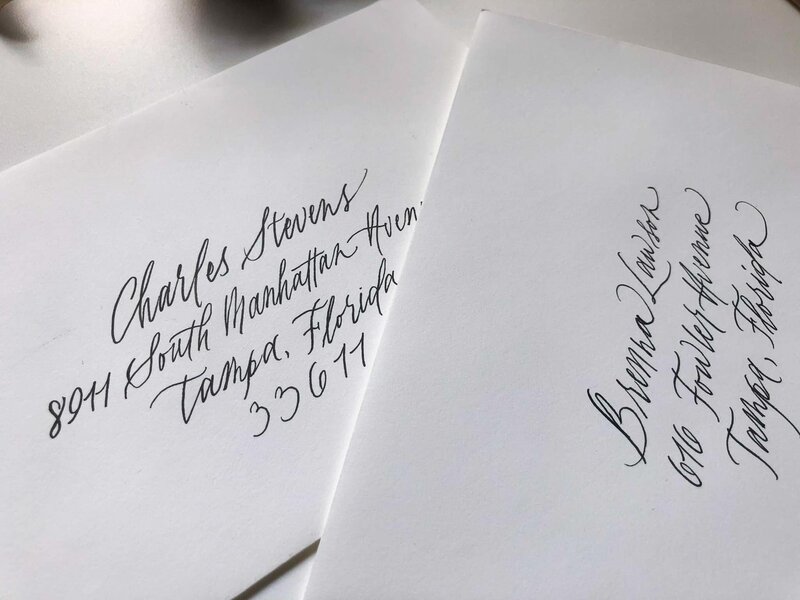 Charles Stevens
8911 South Manhattan Aven
Tampa, Florida
33611
Brenna Lawson
616 Fowler Avenue
Tampa, Florida